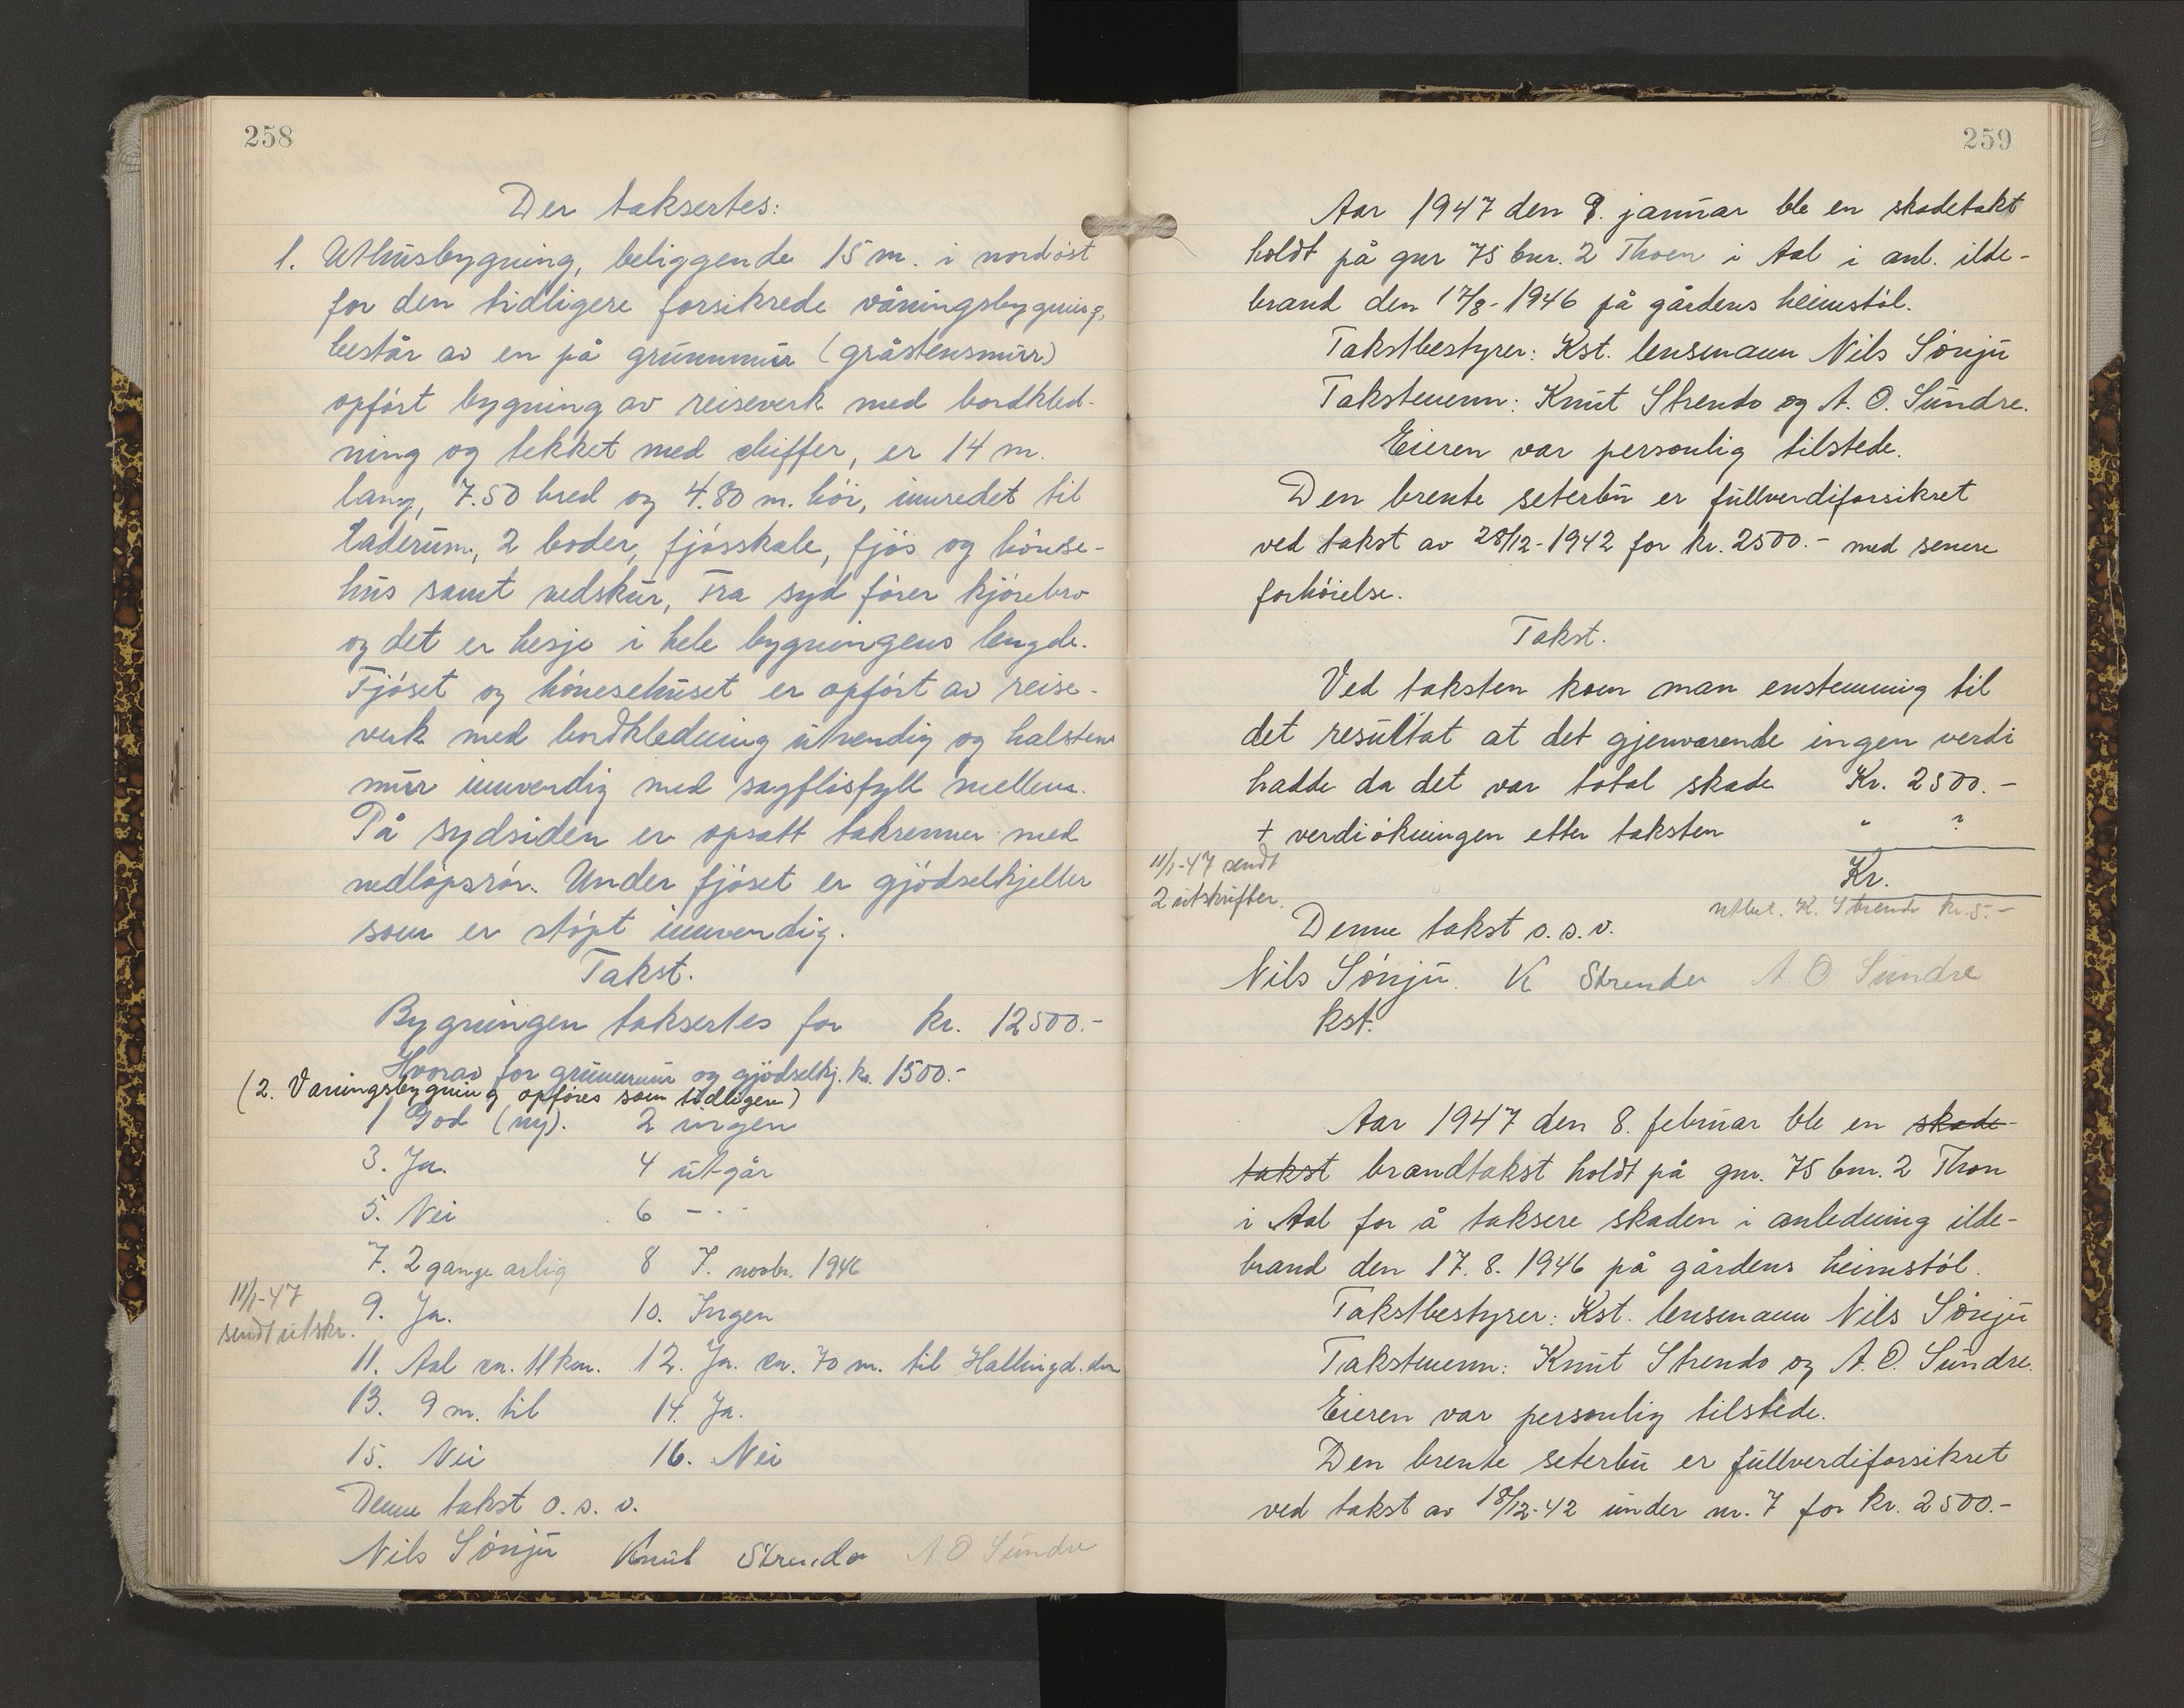 258
Der taksertes:
1. Uthusbygning, beliggende 15 m. i nordøst
for den tidligere forsikrede våningsbygning,
består av en på grunnmur (gråstensmur)
opført bygning av reiseverk med bordkled-
ning og tekket med skiffer, er 14 m.
lang, 7.50 bred og 4.80 m. høi, innredet til
laderum, 2 boder, fjøsskale, fjøs og hønse-
hus samt vedskur, Fra syd fører kjørebro
og det er hesje i hele bygningens lengde.
Fjøset og hønesehuset er opført av reise-
verk med bordkledning utvendig og halvstens
mur innvendig med sagflisfyll mellem.
På sydsiden er opsatt takrenner med
nedløpsrør. Under fjøset er gjødselkjeller
som er støpt innvendig.
Takst.
Bygningen taksertes for kr. 12500.-
Hvorav for grunnmur og gjødselkj. kr. 1500.-
(2. Våningsbygning opføres som tidligere)
1 God (ny). 2 ingen
3. Ja. 4 utgår
5. Nei 6 - . -
7. 2 gange årlig 8 7. novbr. 1946
11/1-47
sendt utskr.
9. Ja. 10. Ingen
11. Aal ca. 11 km. 12. Ja. ca. 70 m. til Hallingd.elva
13. 9 m. til 14. Ja.
15. Nei 16. Nei
Denne takst o. s. v.
Nils Sønju Knut Strendo A O Sundre
259
Aar 1947 den 8. januar ble en skadetakt
holdt på gnr 75 bnr. 2 Thoen i Aal i anl. ilde-
brand den 17/8-1946 på gårdens heimstøl.
Takstbestyrer: Kst. lensmann Nils Sønju
Takstmenn: Knut Strendo og A. O. Sundre.
Eieren var personlig tilstede.
Den brente seterbu er fullverdiforsikret
ved takst av 28/12-1942 for kr. 2500.- med senere
forhøielse.
Takst.
Ved taksten kom man enstemmig til
det resultat at det gjenværende ingen verdi
hadde da det var total skade Kr. 2500.-
+ verdiøkningen etter taksten " ?
11/1-47 sendt
2 utskrifter.
Kr.
utbet. K. Strendo kr. 5.-
Denne takst o. s. v.
Nils Sønju. K Strendo A O Sundre
kst.
Aar 1947 den 8. februar ble en skade-
takst brandtakst holdt på gnr. 75 bnr. 2 Thon
i Aal for å taksere skaden i anledning ilde-
brand den 17. 8. 1946 på gårdens heimstøl.
Takstbestyrer: Kst. lensmann Nils Sønju
Takstmenn: Knut Strendo og A. O. Sundre.
Eieren var personlig tilstede.
Den brente seterbu er fullverdiforsikret
ved takst av 18/12-42 under nr. 7 for kr. 2500.-